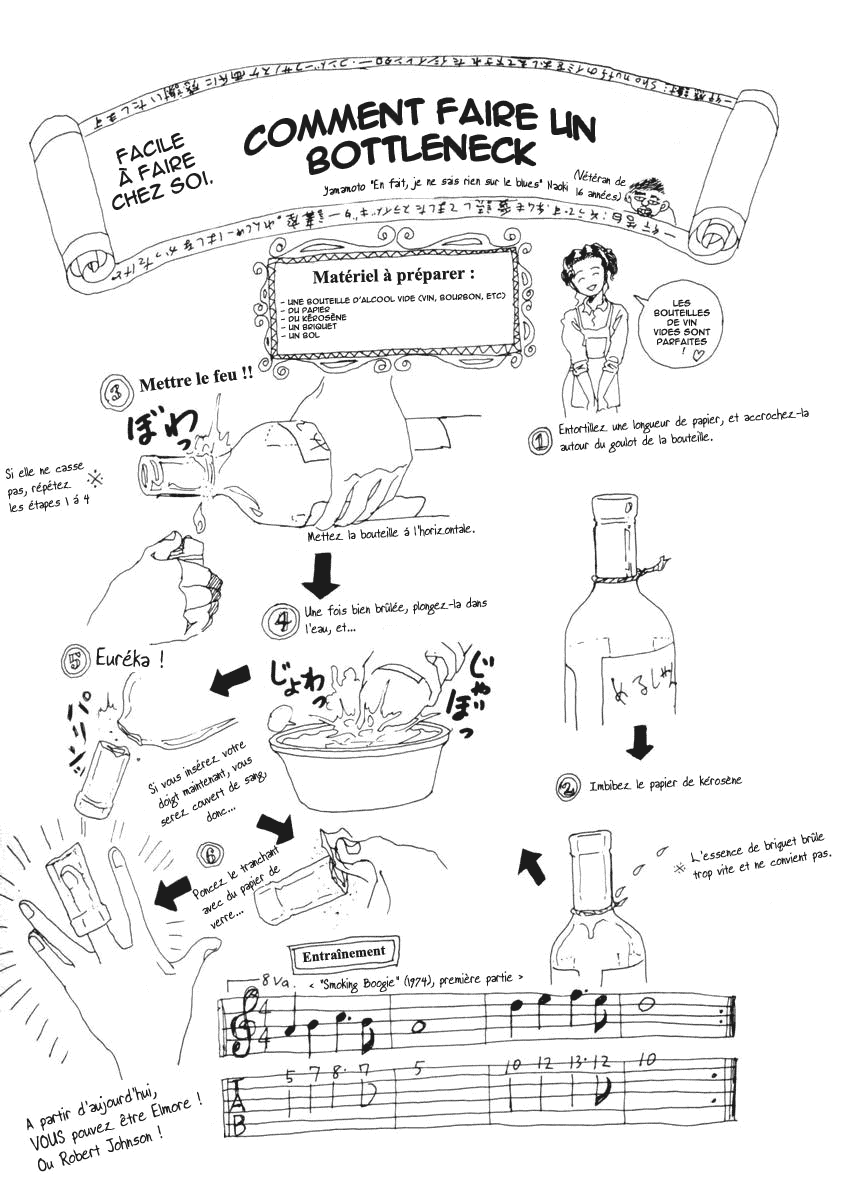 FACILE
À FAIRE
CHEZ SOI.
COMMENT FAIRE UN
BOTTLENECK
Yamamoto "En fait, je ne sais rien sur le blues" Naoki
(Vétéran de
16 années)
Matériel à préparer :
- UNE BOUTEILLE D'ALCOOL VIDE (VIN, BOURBON, ETC)
- DU PAPIER
- DU KÉROSÈNE
- UN BRIQUET
- UN BOL
LES
BOUTEILLES
DE VIN
VIDES SONT
PARFAITES
! ♡
1
Entortillez une longueur de papier, et accrochez-la
autour du goulot de la bouteille.
2
Imbibez le papier de kérosène
※ L'essence de briquet brûle
trop vite et ne convient pas.
3
Mettre le feu !!
ぼわっ
Si elle ne casse
pas, répétez ※
les étapes 1 á 4
Mettez la bouteille á l'horizontale.
4
Une fois bien brûlée, plongez-la dans
l'eau, et...
じょわっ
じゃぼっ
5
Euréka !
Si vous insérez votre
doigt maintenant, vous
serez couvert de sang,
donc...
6
Poncez le tranchant
avec du papier de
verre...
Entraînement
8va.
< "Smoking Boogie" (1974), première partie >
4
4
5 7 8. 7 5 10 12 13. 12 10
T
A
B
A partir d'aujourd'hui,
VOUS pouvez être Elmore !
Ou Robert Johnson !